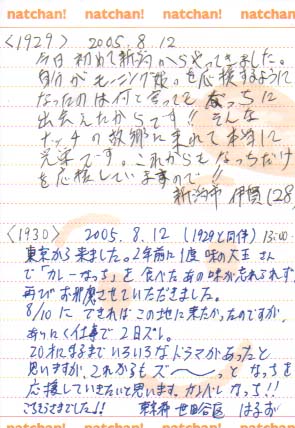 natchan! natchan! natchan! natchan!
〈1929〉 2005.8.12
今日初めて新潟からやってきました。
自分がモーニング娘。を応援するように
なったのは何と言っても なっちに
出会えたからです!! そんな
ナッチの故郷に来れて本当に
光栄です。これからもなっちだけ
を応援していきますので!!
新潟市 伊賀(28)
〈1930〉 2005.8.12 (1929と同伴) 13:00
東京から来ました。2年前に1度 味の大王 さん
で「カレーなっち」を食べたあの味が忘れられず、
再びお邪魔させていただきました。
8/10に できればこの地に来たかったのですが、
あいにく仕事で2日ズレ。
20才になるまでいろいろなドラマがあったと
思いますが、これからもズ〜〜っと なっちを
応援していきたいと思います。ガンバレなっち!!
ごちそうさまでした!! 東京都 世田谷区 はるず
natchan! natchan! natchan! natchan!